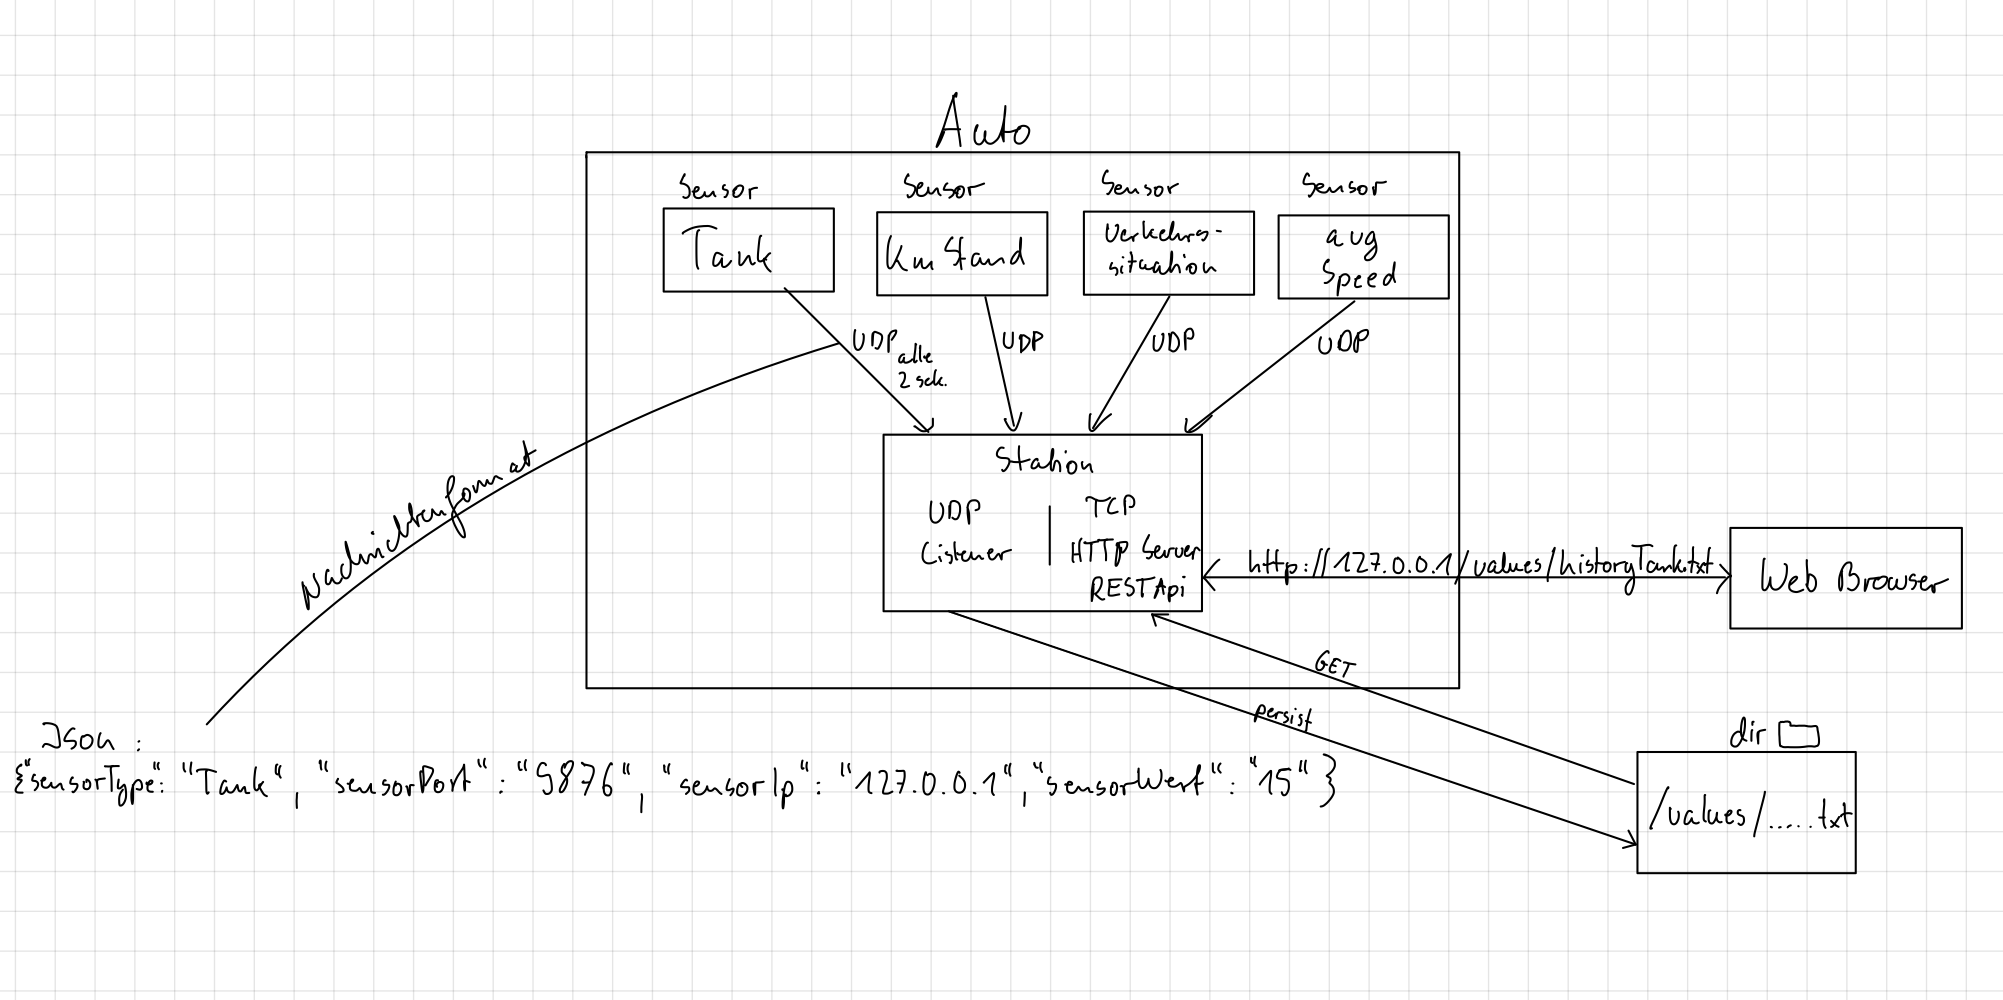 Auto
Sensor
Tank
Sensor
Km Stand
Sensor
Verkehrs-
situation
Sensor
avg
Speed
UDP
alle
2 sek.
UDP
UDP
UDP
Nachrichtenformat
Station
UDP
Listener
TCP
HTTP Server
RESTApi
http://127.0.0.1/values/historyTank.txt
Web Browser
GET
persist
dir
/values/.....txt
Json :
{"sensorType": "Tank", "sensorPort": "9876", "sensorIp": "127.0.0.1", "sensorWert": "15"}